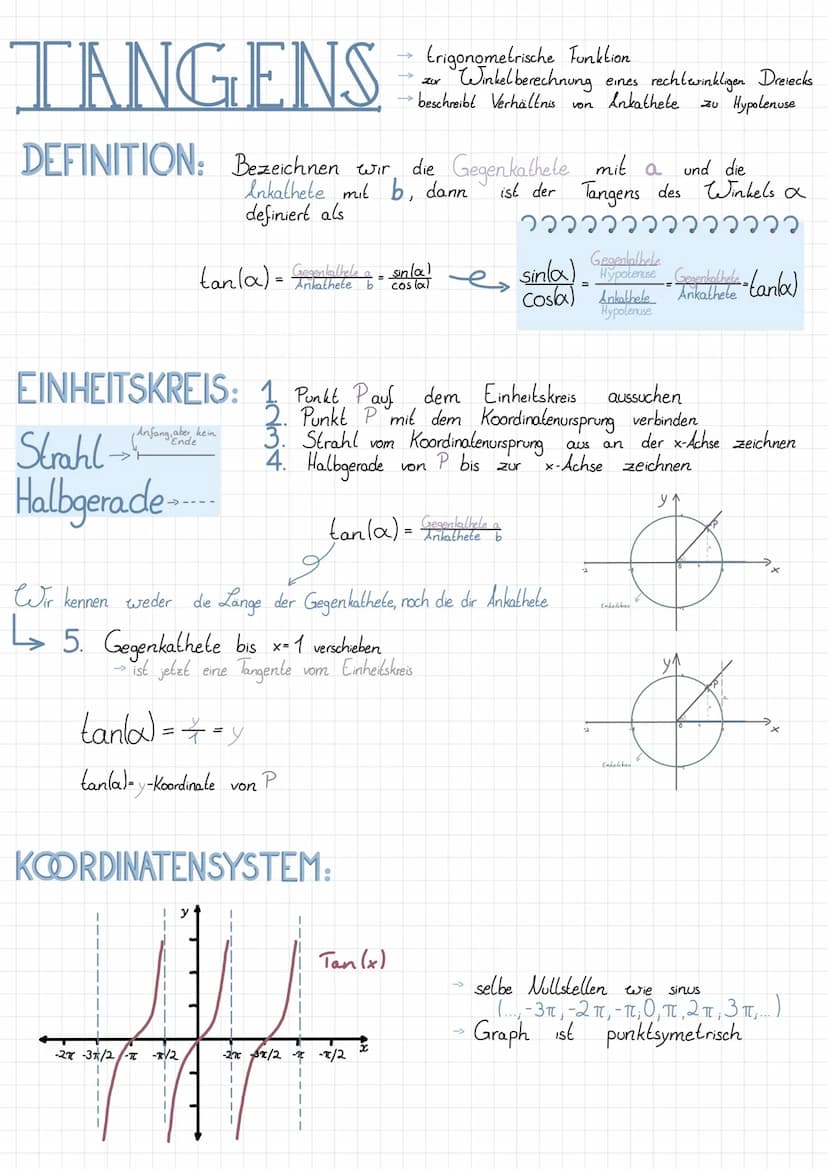 TANGENS
→ trigonometrische Funktion
→ zur Winkelberechnung eines rechtwinkligen Dreiecks
→ beschreibt Verhältnis von Ankathete zu Hypotenuse
DEFINITION: Bezeichnen wir die Gegenkathete mit a und die
Ankathete mit b, dann ist der Tangens des Winkels α
definiert als
tan(α) = Gegenkathete a / Ankathete b = sin(α) / cos(α)
sin(α) / cos(α) = Gegenkathete / Hypotenuse / Ankathete / Hypotenuse = Gegenkathete / Ankathete = tan(α)
EINHEITSKREIS:
1. Punkt P auf dem Einheitskreis aussuchen
2. Punkt P mit dem Koordinatenursprung verbinden
3. Strahl vom Koordinatenursprung aus an der x-Achse zeichnen
4. Halbgerade von P bis zur x-Achse zeichnen
Strahl → Anfang, aber kein
Ende
Halbgerade →
tan(α) = Gegenkathete a / Ankathete b
Wir kennen weder die Länge der Gegenkathete, noch die dir Ankathete
5. Gegenkathete bis x=1 verschieben
→ ist jetzt eine Tangente vom Einheitskreis
tan(α) = y / 1 = y
tan(α) = y-Koordinate von P
y
P
x
y
P
x
KOORDINATENSYSTEM:
y
Tan(x)
-2π -3π/2 -π -π/2 -2π -3π/2 -π -π/2 x
→ selbe Nullstellen wie sinus
(..., -3π, -2π, -π, 0, π, 2π, 3π, ...)
→ Graph ist punktsymetrisch